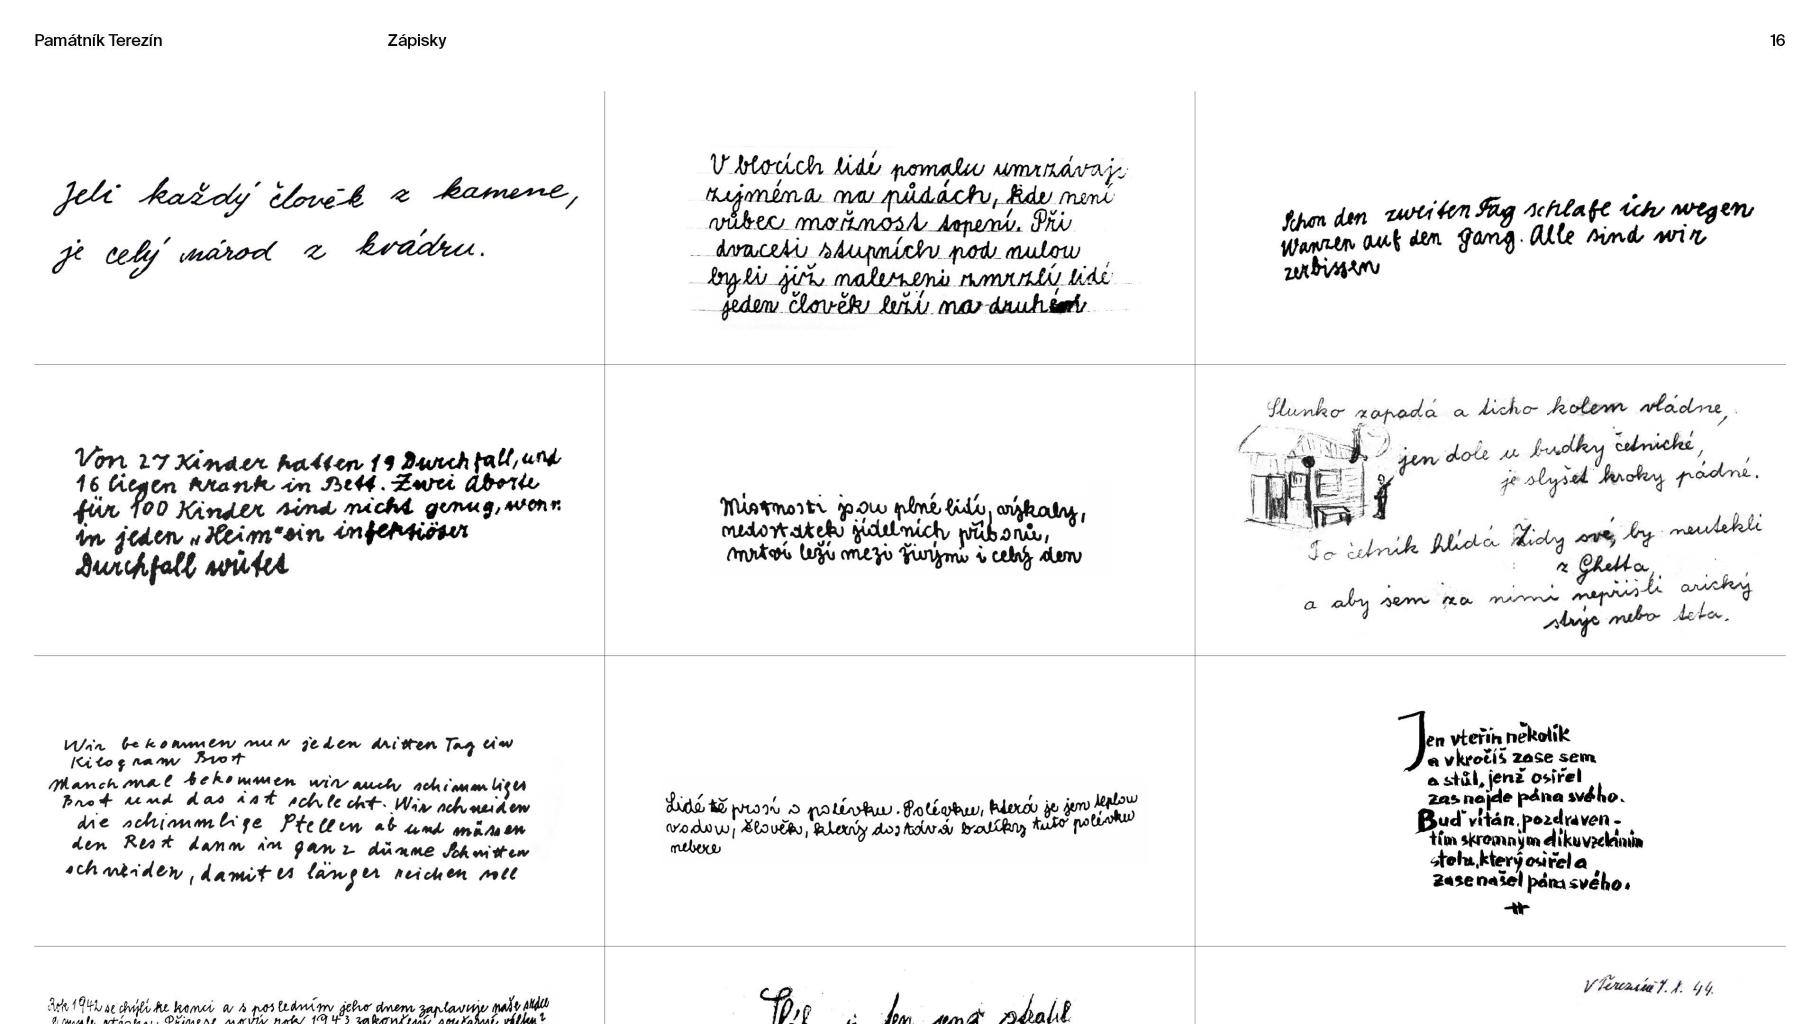 Památník Terezín
Zápisky
16
Jeli každý člověk z kamene,
je celý národ z kvádru.
V blocích lidé pomalu umrzávají
zejména na půdách, kde není
vůbec možnost topení. Při
dvaceti stupních pod nulou
byli již nalezeni zmrzlí lidé
jeden člověk leží na druhém
Schon den zweiten Tag schlafe ich wegen
Wanzen auf den Gang. Alle sind wir
zerbissen
Von 27 Kinder hatten 19 Durchfall, und
16 liegen krank in Bett. Zwei Aborte
für 100 Kinder sind nicht genug, wenn
in jeden „Heim" ein infektiöser
Durchfall wütet
Místnosti jsou plné lidí, výkaly,
nedostatek jídelních příborů,
mrtví leží mezi živými i celý den
Slunko zapadá a ticho kolem vládne,
jen dole u budky četnické,
je slyšet kroky pádné.
To četník hlídá Židy své, by neutekli
z Ghetta,
a aby sem za nimi nepřišli arický
strýc nebo teta.
Wir bekommen nur jeden dritten Tag ein
Kilogram Brot
Manchmal bekommen wir auch schimmliges
Brot und das ist schlecht. Wir schneiden
die schimmlige Stellen ab und müssen
den Rest dann in ganz dünne Schnitten
schneiden, damit es länger reichen soll
Lidé tě prosí o polévku. Polévku, která je jen teplou
vodou, člověk, který dostává balíky tuto polévku
nebere
Jen vteřin několik
a vkročíš zase sem
a stůl, jenž osiřel
zas najde pána svého.
Buď vítán, pozdraven -
tím skromným díkuvzdáním
stolu, který osiřel a
zase našel pána svého.
Rok 1942 se chýlí ke konci a s posledním jeho dnem zaplavuje naše srdce
Přinese nový rok 1943 zakončení války?
jen
V Terezíně 7. 1. 44.